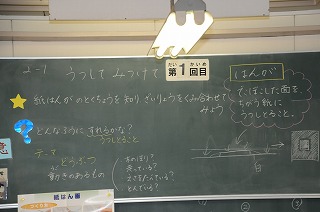 2-1
うつして みつけて
だい かいめ
第1回目
紙はんがのとくちょうを知り ざいりょうをくみ合わせて
みよう
どんなふうに すれるかな?
うつしとること
テーマ
どうぶつ
動きのあるもの
走っている?
とんでいる?
はんが
でこぼこした面を、
ちがう紙に
うつしとること。
紙はん画
②
③